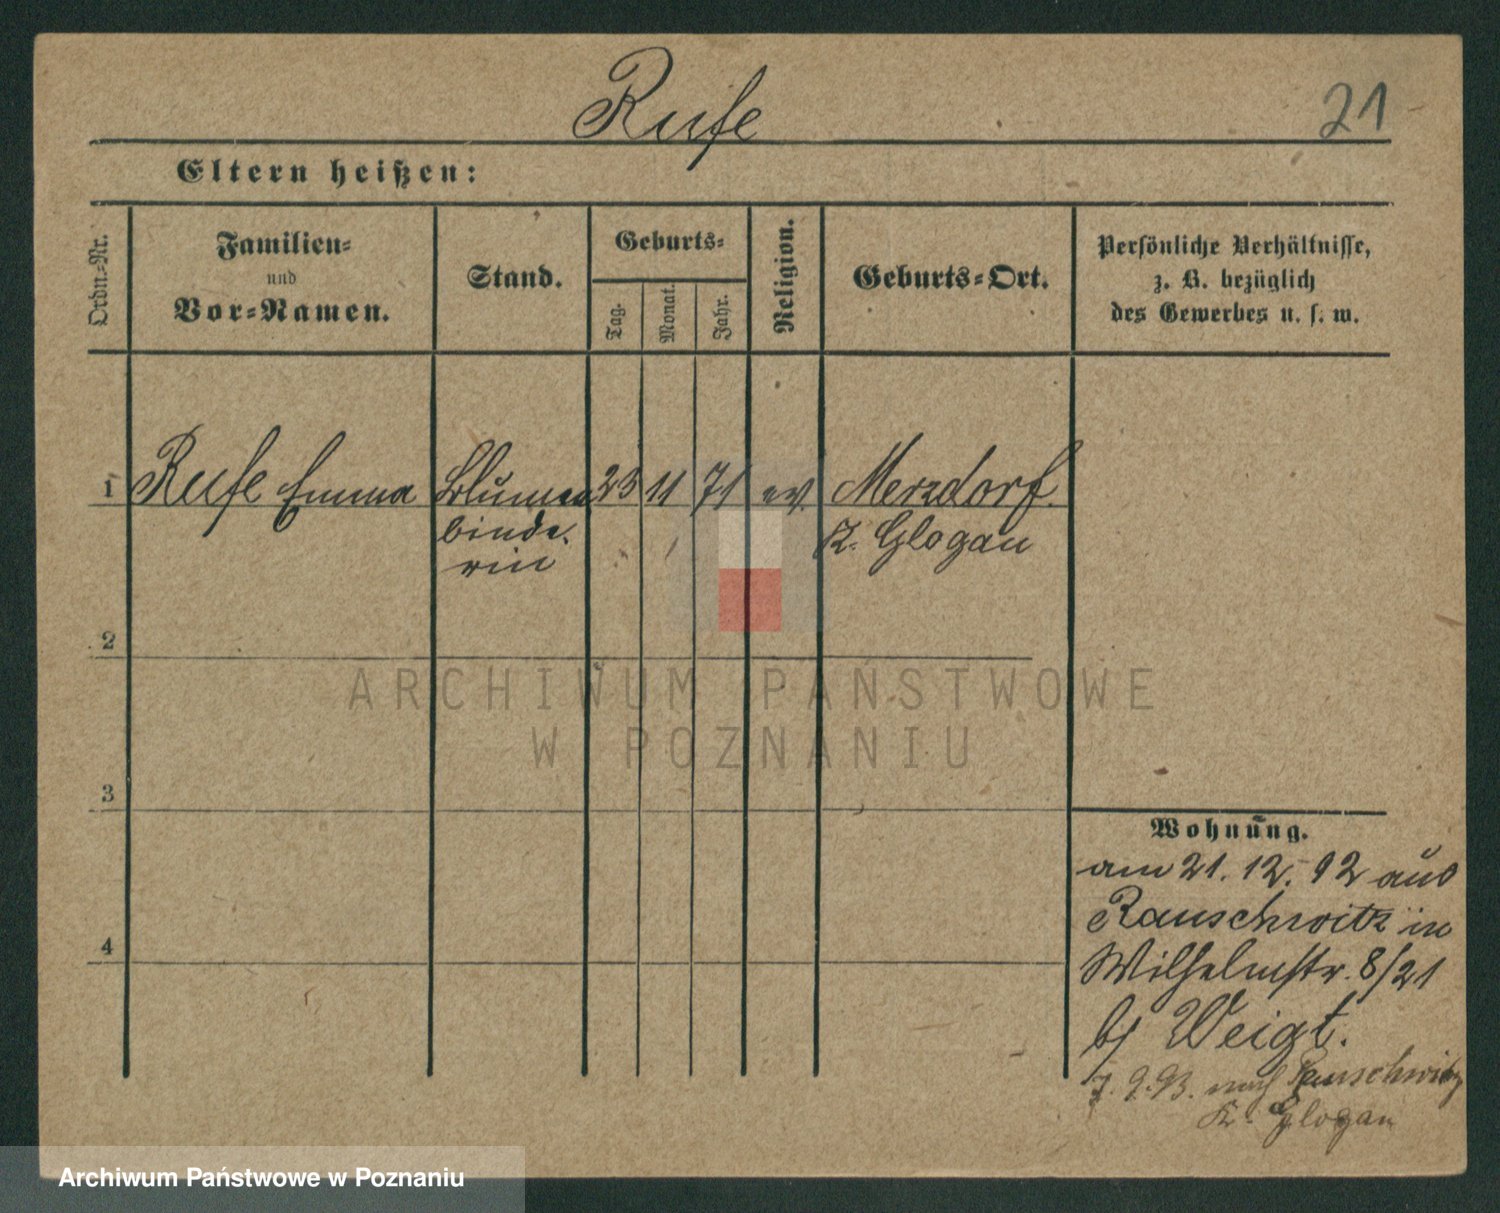 Rufe
21
Eltern heißen:
Ordn.-Nr.
Familien-
und
Vor-Namen.
Stand.
Geburts-
Tag.
Monat.
Jahr.
Religion.
Geburts-Ort.
Persönliche Verhältnisse,
z. B. bezüglich
des Gewerbes u. s. w.
1 Rufe Emma Blumen 23 11 71 ev. Merzdorf.
binde.
rin
K. Glogau
2
ARCHIWUM PAŃSTWOWE
W POZNANIU
3
4
Wohnung.
am 21. 12. 92 aus
Rauschwitz in
Wilhelmstr. 8/21
b/ Weigt.
7. 9. 93. nach Rauschwitz
K. Glogau
Archiwum Państwowe w Poznaniu